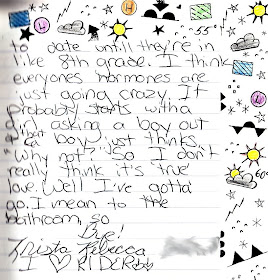 to date until they're in
like 8th grade. I think
everyones hormones are
just going crazy. It
probably starts with a
girl asking a boy out
& that boy just thinks
"Why not?" So I don't
really think it's 'true'
love. Well I've gotta
go. I mean to the
bathroom, so
Bye!
Rebecca
I ♡ RIDER
55°
60°